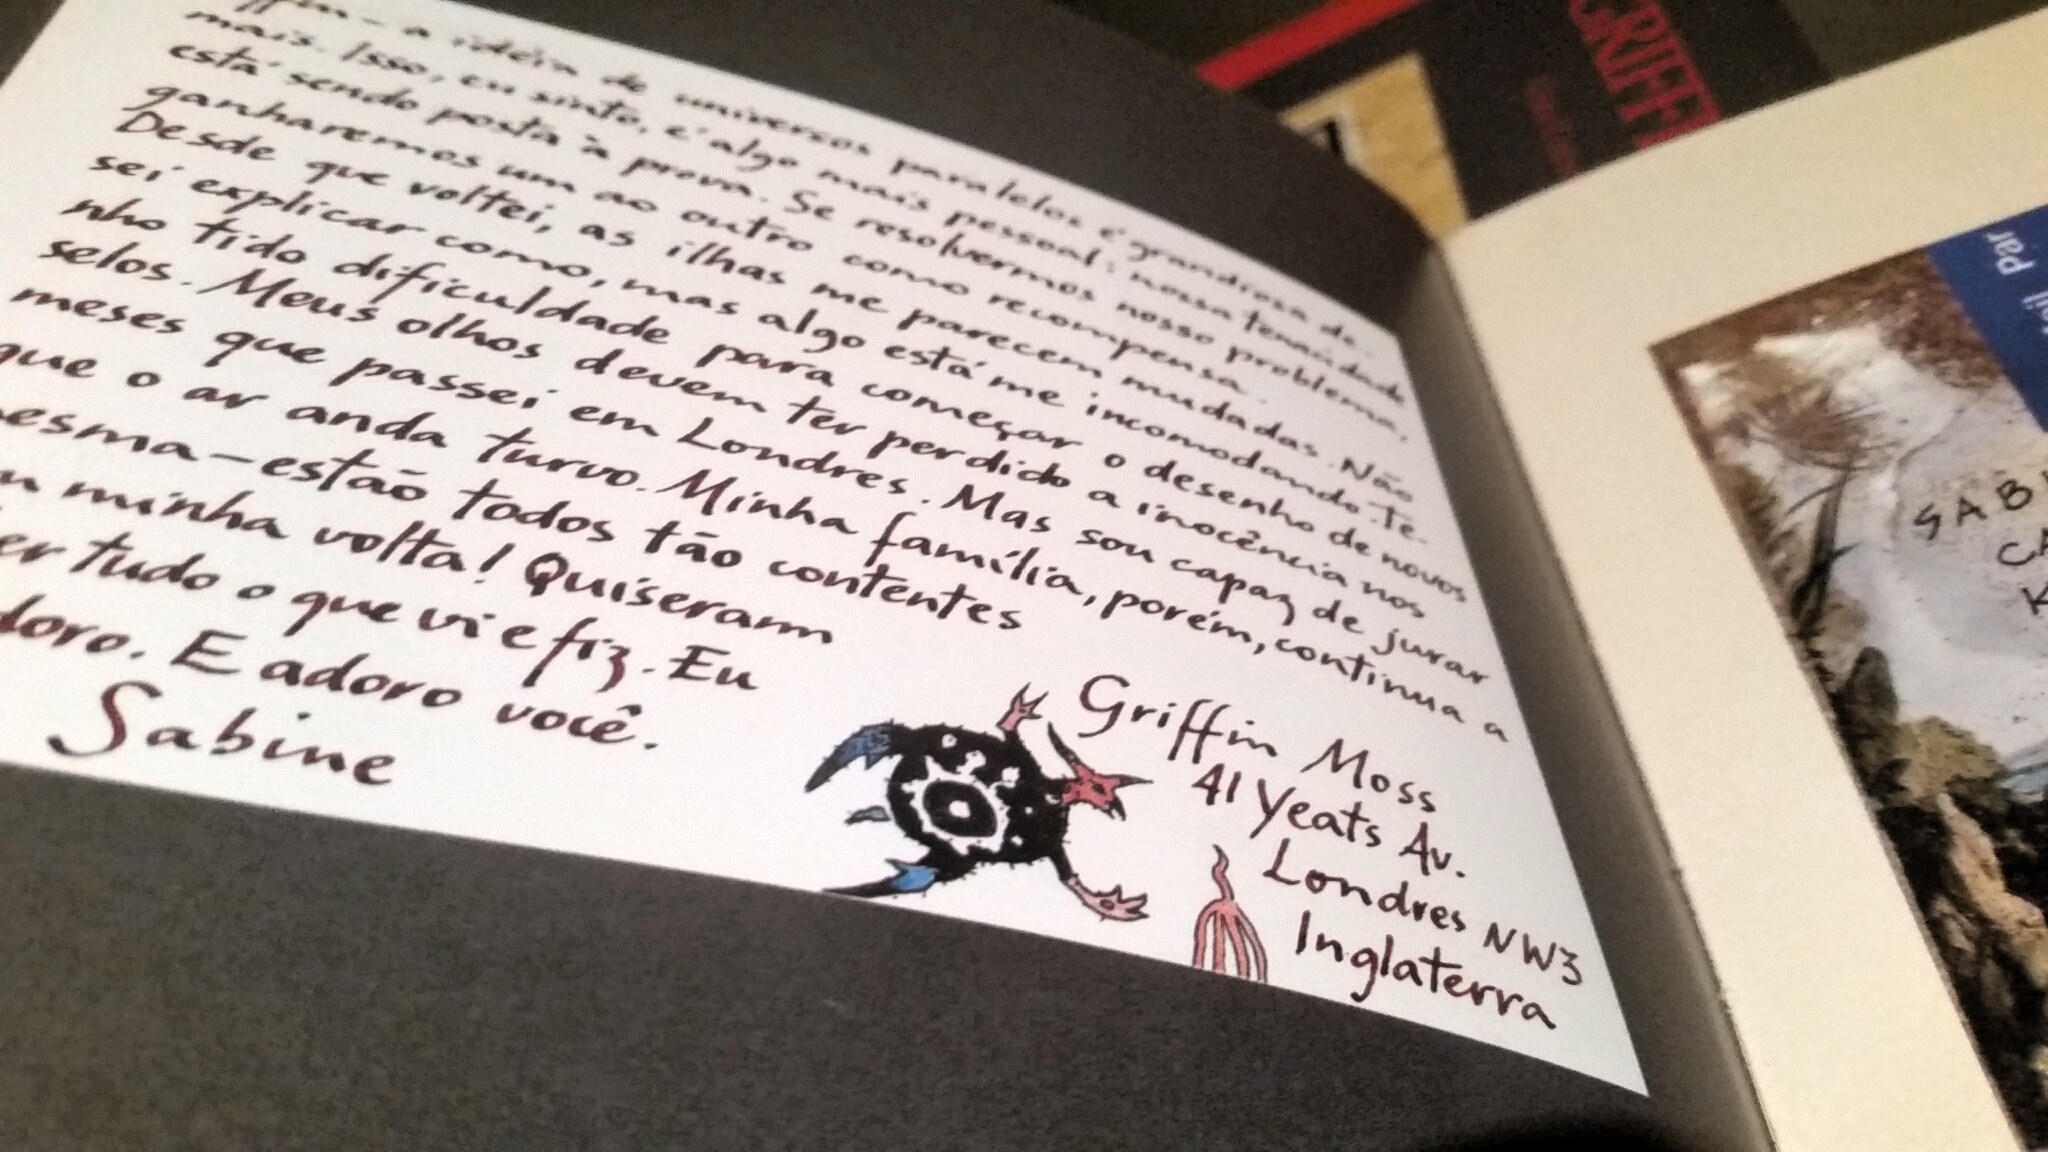 a idéia de universos paralelos é grandiosa de-
mais. Isso, eu sinto, é algo mais pessoal: nossa tenacidade
está sendo posta à prova. Se resolvermos nosso problema,
ganharemos um ao outro como recompensa.
Desde que voltei, as ilhas me parecem mudadas. Não
sei explicar como, mas algo está me incomodando. Te-
nho tido dificuldade para começar o desenho de novos
selos. Meus olhos devem ter perdido a inocência nos
meses que passei em Londres. Mas sou capaz de jurar
que o ar anda turvo. Minha família, porém, continua a
esma-estão todos tão contentes
minha volta! Quiseram
er tudo o que vi e fiz. Eu
doro. E adoro você.
Sabine
Griffin Moss
41 Yeats Av.
Londres NW3
Inglaterra
GRIFF
Par
SAB
CA
K